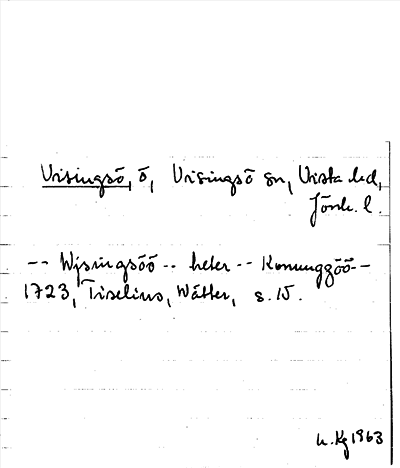 Visingsö, ö, Visingsö sn, Vista hd,
Jönk. l.
-- Wjsingsöö -- heter -- Konunggzöö --
1723, Tiselius, Wätter, s. 15.
h. Kg 1963